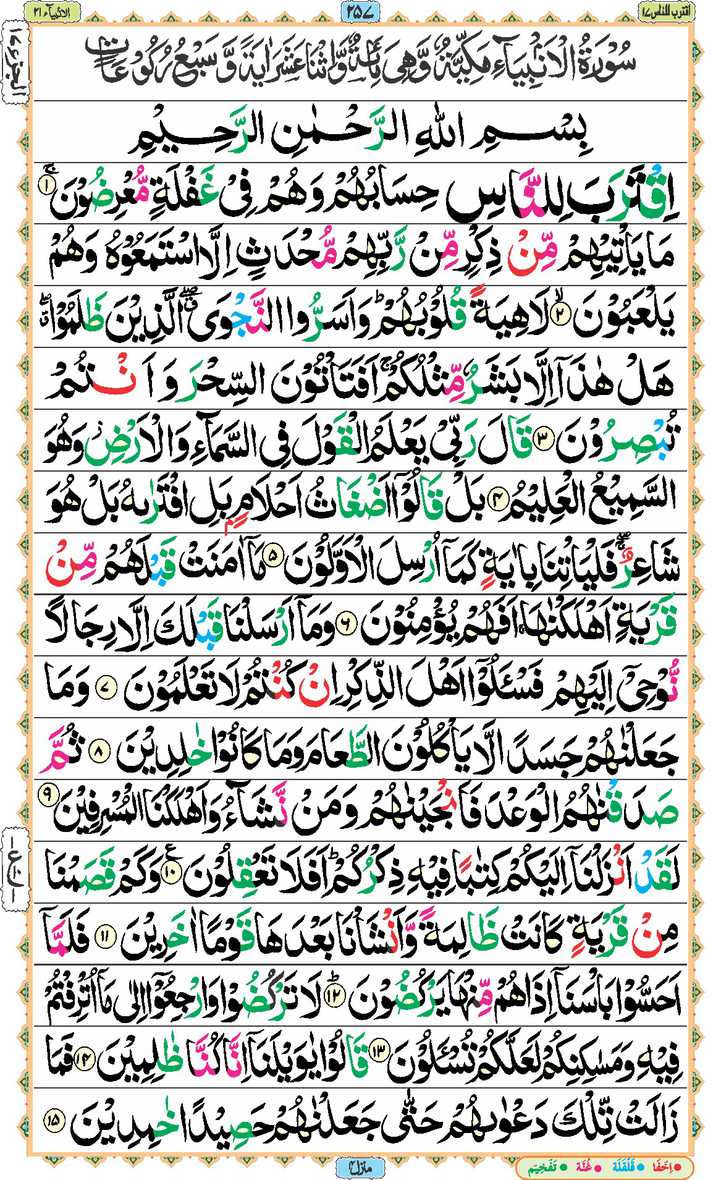 اقترب للناس ١٧
٢٥٧
الانبیآء ٢١
سُوْرَةُ الْاَنْۢبِيَآءِ مَكِّيَّةٌ وَّهِيَ مِائَةٌ وَّاثْنَا عَشَرَ اٰيَةً وَّسَبْعُ رُكُوْعَاتٍ
بِسْمِ اللهِ الرَّحْمٰنِ الرَّحِيْمِ
اِقْتَرَبَ لِلنَّاسِ حِسَابُهُمْ وَهُمْ فِيْ غَفْلَةٍ مُّعْرِضُوْنَ ۚ ١
مَا يَاْتِيْهِمْ مِّنْ ذِكْرٍ مِّنْ رَّبِّهِمْ مُّحْدَثٍ اِلَّا اسْتَمَعُوْهُ وَهُمْ
يَلْعَبُوْنَ ۙ ٢ لَاهِيَةً قُلُوْبُهُمْ ؕ وَاَسَرُّوا النَّجْوَى ۖ الَّذِيْنَ ظَلَمُوْا ۖ
هَلْ هٰذَاۤ اِلَّا بَشَرٌ مِّثْلُكُمْ ۚ اَفَتَاْتُوْنَ السِّحْرَ وَاَنْتُمْ
تُبْصِرُوْنَ ٣ قٰلَ رَبِّيْ يَعْلَمُ الْقَوْلَ فِي السَّمَآءِ وَالْاَرْضِ ؗ وَهُوَ
السَّمِيْعُ الْعَلِيْمُ ٤ بَلْ قَالُوْۤا اَضْغَاثُ اَحْلَامٍۭ بَلِ افْتَرٰىهُ بَلْ هُوَ
شَاعِرٌ ۖۚ فَلْيَاْتِنَا بِاٰيَةٍ كَمَاۤ اُرْسِلَ الْاَوَّلُوْنَ ٥ مَاۤ اٰمَنَتْ قَبْلَهُمْ مِّنْ
قَرْيَةٍ اَهْلَكْنٰهَا ۚ اَفَهُمْ يُؤْمِنُوْنَ ٦ وَمَاۤ اَرْسَلْنَا قَبْلَكَ اِلَّا رِجَالًا
نُّوْحِيْۤ اِلَيْهِمْ فَسْـَٔلُوْۤا اَهْلَ الذِّكْرِ اِنْ كُنْتُمْ لَا تَعْلَمُوْنَ ٧ وَمَا
جَعَلْنٰهُمْ جَسَدًا لَّا يَاْكُلُوْنَ الطَّعَامَ وَمَا كَانُوْا خٰلِدِيْنَ ٨ ثُمَّ
صَدَقْنٰهُمُ الْوَعْدَ فَاَنْجَيْنٰهُمْ وَمَنْ نَّشَآءُ وَاَهْلَكْنَا الْمُسْرِفِيْنَ ٩
لَقَدْ اَنْزَلْنَاۤ اِلَيْكُمْ كِتٰبًا فِيْهِ ذِكْرُكُمْ ؕ اَفَلَا تَعْقِلُوْنَ ع ١٠ وَكَمْ قَصَمْنَا
مِنْ قَرْيَةٍ كَانَتْ ظَالِمَةً وَّاَنْشَاْنَا بَعْدَهَا قَوْمًا اٰخَرِيْنَ ١١ فَلَمَّاۤ
اَحَسُّوْا بَاْسَنَاۤ اِذَا هُمْ مِّنْهَا يَرْكُضُوْنَ ؕ ١٢ لَا تَرْكُضُوْا وَارْجِعُوْۤا اِلٰى مَاۤ اُتْرِفْتُمْ
فِيْهِ وَمَسٰكِنِكُمْ لَعَلَّكُمْ تُسْـَٔلُوْنَ ١٣ قَالُوْا يٰوَيْلَنَاۤ اِنَّا كُنَّا ظٰلِمِيْنَ ١٤ فَمَا
زَالَتْ تِّلْكَ دَعْوٰىهُمْ حَتّٰى جَعَلْنٰهُمْ حَصِيْدًا خٰمِدِيْنَ ١٥
منزل ٤
اِخْفَا • قَلْقَلَة • غُنَّة • تَفْخِیْم •